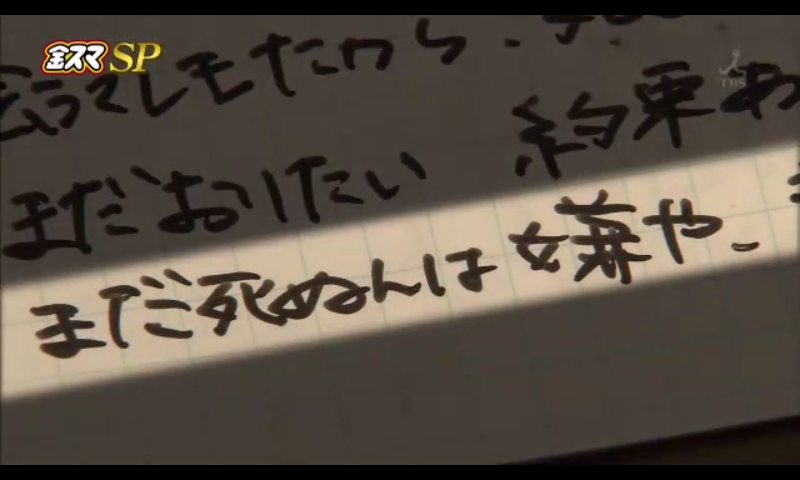 金スマSP
TBS
会うてしもたから、
まだおりたい 約束あ
まだ死ぬんは嫌や。